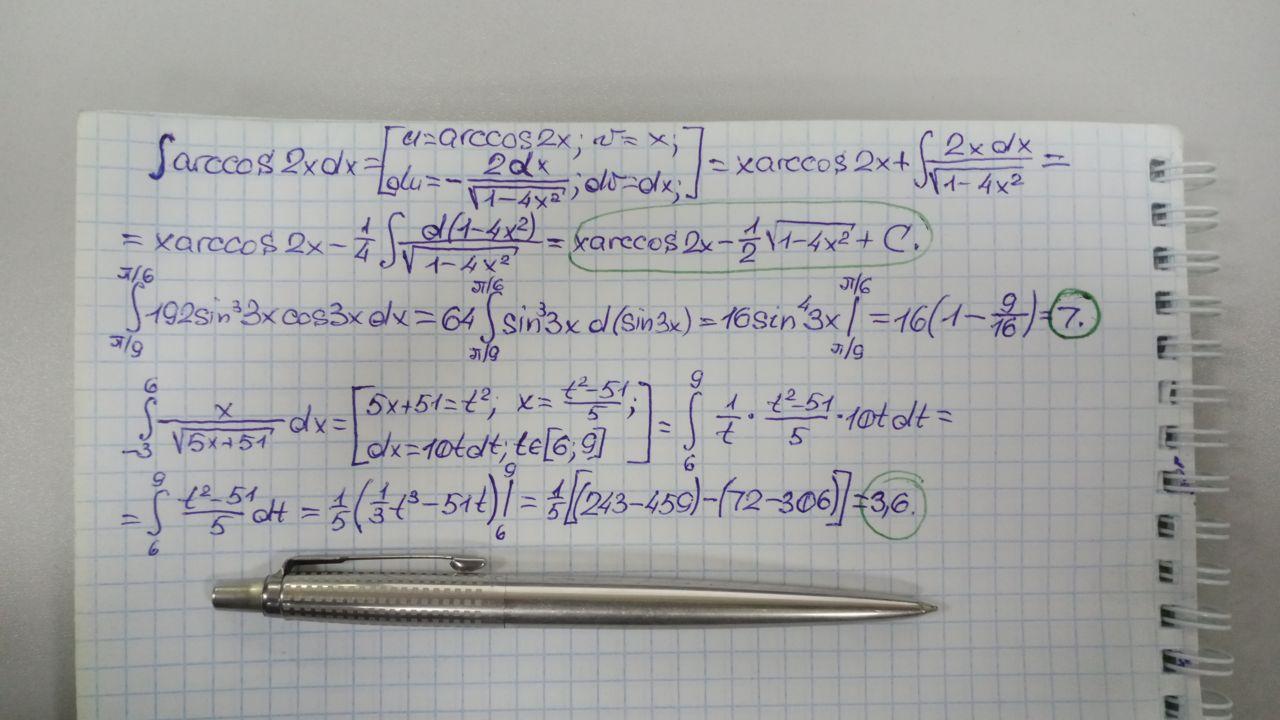 ∫arccos2xdx=[u=arccos2x; v=x; du=-2dx/√(1-4x²); dv=dx;]=xarccos2x+∫2xdx/√(1-4x²)=
=xarccos2x-1/4∫d(1-4x²)/√(1-4x²)=xarccos2x-1/2√(1-4x²)+C.
∫_{π/9}^{π/6}192sin³3xcos3xdx=64∫_{π/9}^{π/6}sin³3xd(sin3x)=16sin⁴3x|_{π/9}^{π/6}=16(1-9/16)=7.
∫_{-3}^{6}x/√(5x+51)dx=[5x+51=t²; x=(t²-51)/5; dx=10tdt; t∈[6;9]]=∫_{6}^{9}1/t·(t²-51)/5·10tdt=
=∫_{6}^{9}(t²-51)/5dt=1/5(1/3t³-51t)|_{6}^{9}=1/5[(243-459)-(72-306)]=3,6.